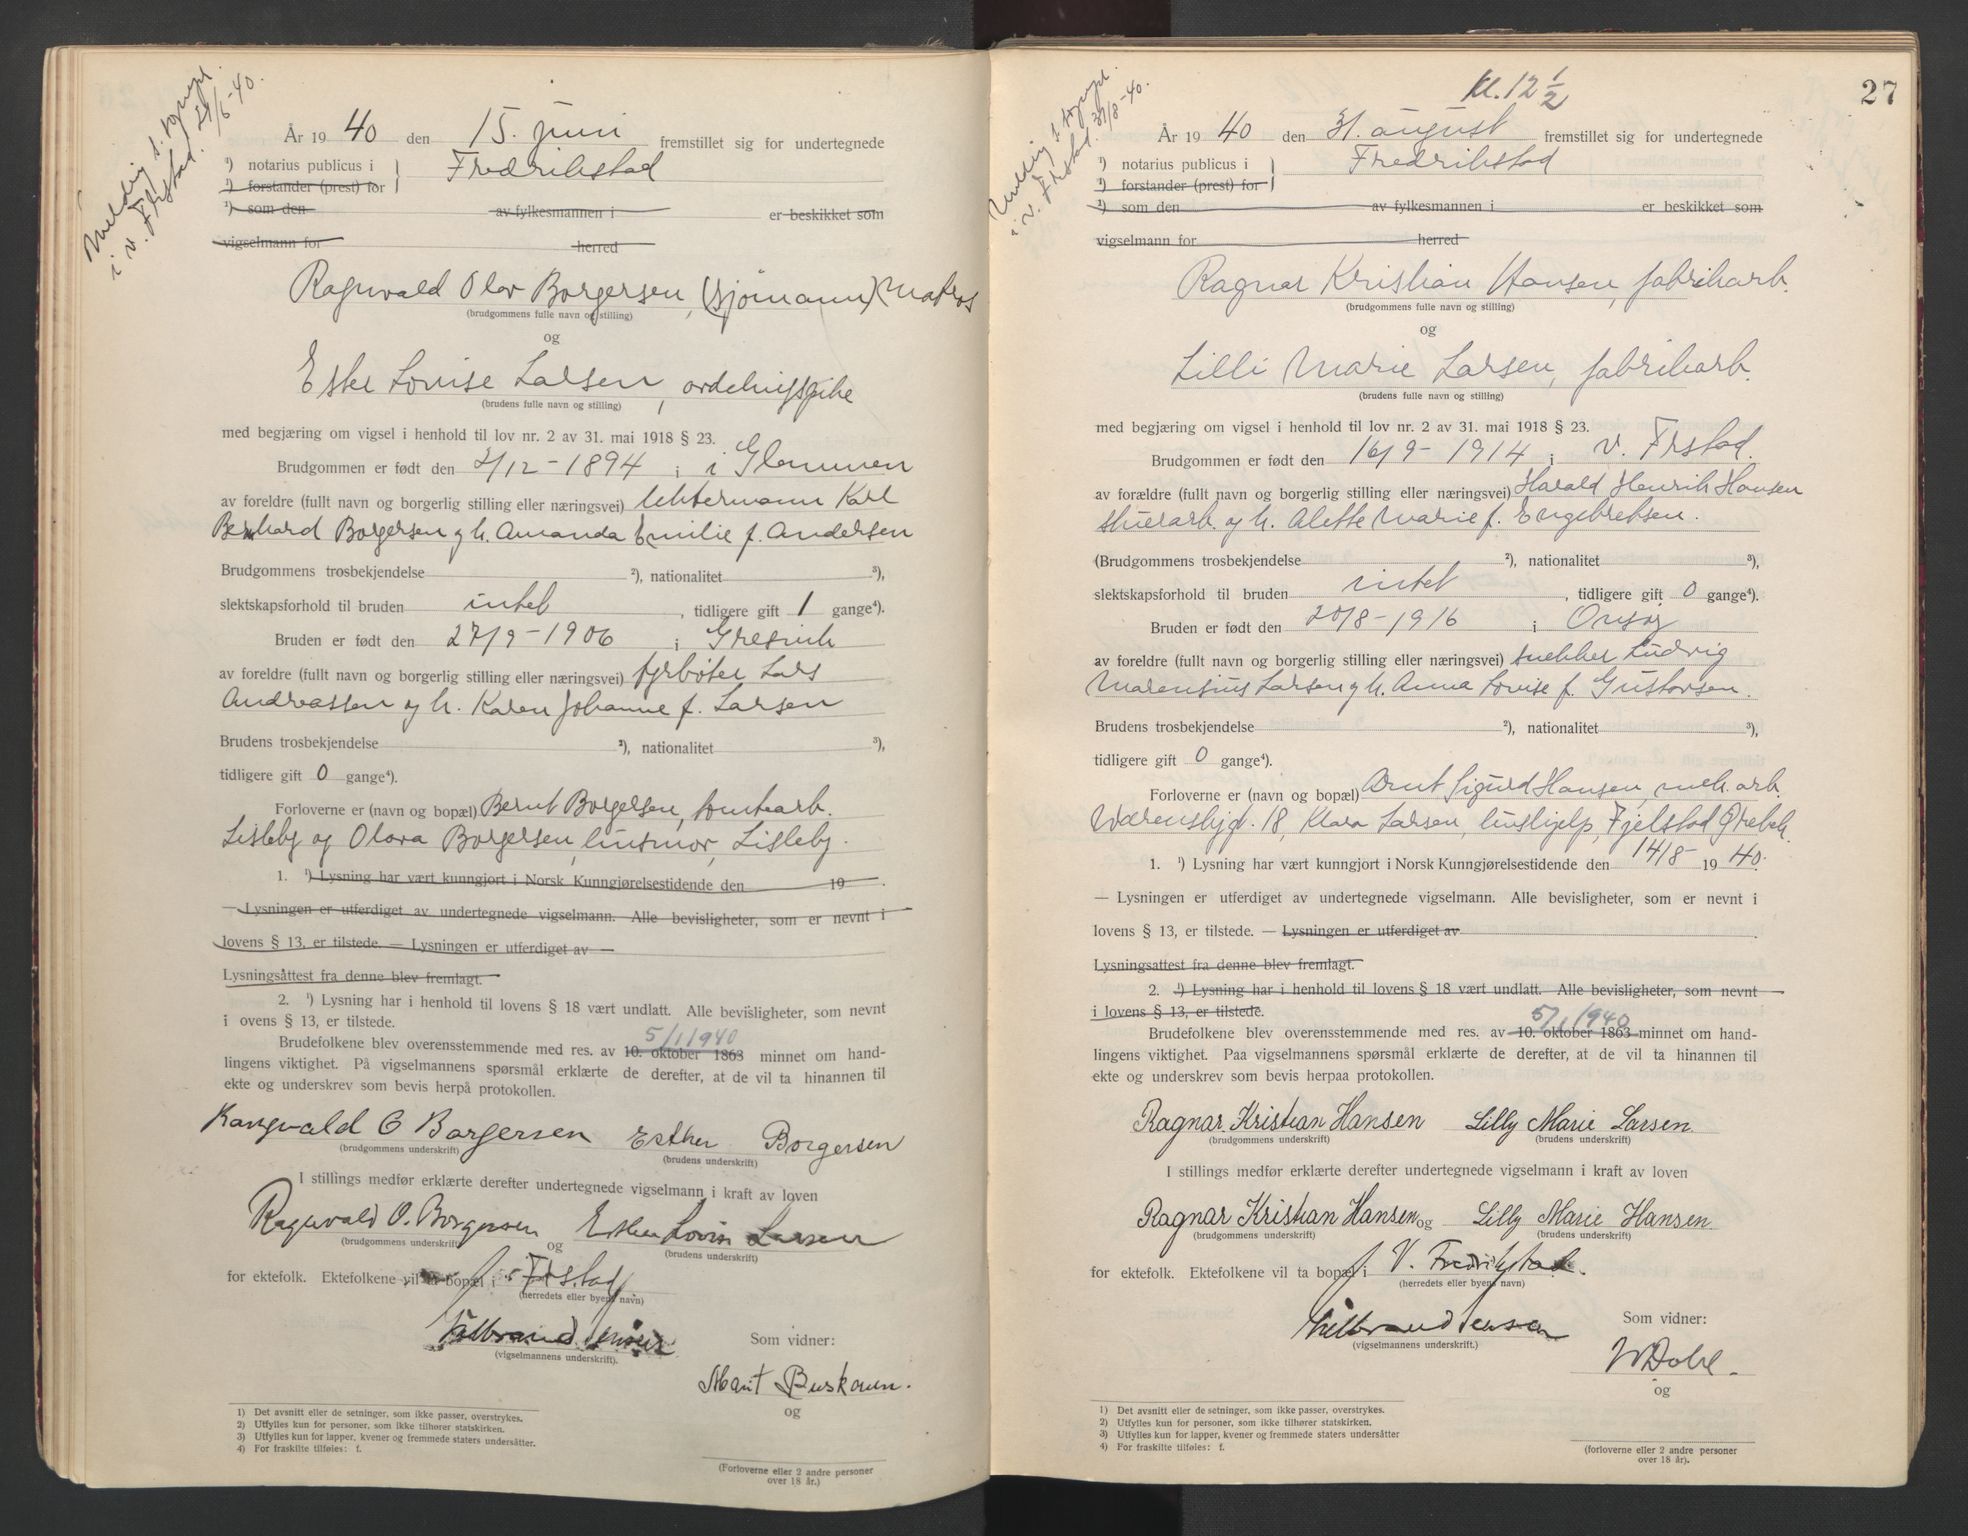 Melding s. sognepr.
i v. Frstad. 21/6-40.
År 1940 den 15. juni fremstillet sig for undertegnede
¹) notarius publicus i } Fredrikstad
¹) forstander (prest) for
¹) som den av fylkesmannen i er beskikket som
vigselmann for herred
Ragnvald Olav Borgersen, (sjømann) Matros
(brudgommens fulle navn og stilling)
og
Ester Lovise Larsen, avdelingspike
(brudens fulle navn og stilling)
med begjæring om vigsel i henhold til lov nr. 2 av 31. mai 1918 § 23.
Brudgommen er født den 3/12-1894 i i Glemmen
av foreldre (fullt navn og borgerlig stilling eller næringsvei) lektermann Karl
Bernhard Borgersen og h. Amanda Emilie f. Andersen
Brudgommens trosbekjendelse ²), nationalitet ³),
slektskapsforhold til bruden intet, tidligere gift 1 gange⁴).
Bruden er født den 27/9-1906 i Gresvik
av foreldre (fullt navn og borgerlig stilling eller næringsvei) fyrbøter Lars
Andreassen og h. Karen Johanne f. Larsen
Brudens trosbekjendelse ²), nationalitet ³),
tidligere gift 0 gange⁴).
Forloverne er (navn og bopæl) Bernt Borgersen, tomtearb.
Lisleby og Olava Borgersen, husmor, Lisleby.
1. ¹) Lysning har vært kunngjort i Norsk Kunngjørelsestidende den 19 .
— Lysningen er utferdiget av undertegnede vigselmann. Alle bevisligheter, som er nevnt i
lovens § 13, er tilstede. — Lysningen er utferdiget av
Lysningsattest fra denne blev fremlagt.
2. ¹) Lysning har i henhold til lovens § 18 vært undlatt. Alle bevisligheter, som nevnt
i ovens § 13, er tilstede.
5/1 1940
Brudefolkene blev overensstemmende med res. av 10. oktober 1863 minnet om hand-
lingens viktighet. På vigselmannens spørsmål erklærte de derefter, at de vil ta hinannen til
ekte og underskrev som bevis herpå protokollen.
Rangvald O Borgersen Esther Borgersen
(brudgommens underskrift) (brudens underskrift)
I stillings medfør erklærte derefter undertegnede vigselmann i kraft av loven
Ragnvald O. Borgersen og Esther Lovise Larsen
(brudgommens underskrift) (brudens underskrift)
for ektefolk. Ektefolkene vil ta bopæl i Frstad
(herredets eller byens navn)
Hilbrand Jensen
(vigselmannens underskrift).
Som vidner:
Marit Buskoven.
og
(Forloverne eller 2 andre personer
over 18 år.)
1) Det avsnitt eller de setninger, som ikke passer, overstrykes.
2) Utfylles kun for personer, som ikke tilhører statskirken.
3) Utfylles kun for lapper, kvener og fremmede staters undersåtter.
4) For fraskilte tilføies: f.
27
Kl. 12 1/2
Melding s. sognepr.
i v. Frstad. 31/8-40.
År 1940 den 31. august fremstillet sig for undertegnede
¹) notarius publicus i } Fredrikstad
¹) forstander (prest) for
¹) som den av fylkesmannen i er beskikket som
vigselmann for herred
Ragnar Kristian Hansen, fabrikarb.
(brudgommens fulle navn og stilling)
og
Lilli Marie Larsen, fabrikarb.
(brudens fulle navn og stilling)
med begjæring om vigsel i henhold til lov nr. 2 av 31. mai 1918 § 23.
Brudgommen er født den 16/9-1914 i V. Frstad.
av forældre (fullt navn og borgerlig stilling eller næringsvei) Harald Henrik Hansen
stuerarb. og h. Alette Marie f. Engebretsen.
(Brudgommens trosbekjendelse ²), nationalitet ³),
slektskapsforhold til bruden intet, tidligere gift 0 gange⁴).
Bruden er født den 20/8-1916 i Onsøy
av foreldre (fullt navn og borgerlig stilling eller næringsvei) snekker Ludvig
Marensius Larsen og h. Anna Lovise f. Gustavsen.
Brudens trosbekjendelse ²), nationalitet ³),
tidligere gift 0 gange⁴).
Forloverne er (navn og bopæl) Arnt Sigurd Hansen, mek. arb.
Wærenskjgt. 18, Klara Larsen, hushjelp, Fjelstad Ørebek.
1. ¹) Lysning har vært kunngjort i Norsk Kunngjørelsestidende den 14/8- 1940.
— Lysningen er utferdiget av undertegnede vigselmann. Alle bevisligheter, som er nevnt i
lovens § 13, er tilstede. — Lysningen er utferdiget av
Lysningsattest fra denne blev fremlagt.
2. ¹) Lysning har i henhold til lovens § 18 vært undlatt. Alle bevisligheter, som nevnt
i lovens § 13, er tilstede.
5/1 1940
Brudefolkene blev overensstemmende med res. av 10. oktober 1863 minnet om hand-
lingens viktighet. Paa vigselmannens spørsmål erklærte de derefter, at de vil ta hinannen til
ekte og underskrev som bevis herpaa protokollen.
Ragnar Kristian Hansen Lilly Marie Larsen
(brudgommens underskrift) (brudens underskrift)
I stillings medfør erklærte derefter undertegnede vigselmann i kraft av loven
Ragnar Kristian Hansen og Lilly Marie Hansen
(brudgommens underskrift) (brudens underskrift)
for ektefolk. Ektefolkene vil ta bopæl i V. Fredrikstad.
(herredets eller byens navn)
Hilbrand Jensen
(vigselmannens underskrift.)
Som vidner:
og
(forloverne eller 2 andre personer
over 18 år).
1) Det avsnitt eller de setninger, som ikke passer, overstrykes.
2) Utfylles kun for personer, som ikke tilhører statskirken.
3) Utfylles kun for lapper, kvener og fremmede staters undersåtter
4) For fraskilte tilføies: f.